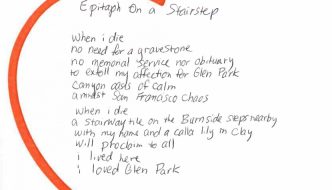 Epitaph On a Stairstep
when i die
no need for a gravestone
no memorial service nor obituary
to extoll my affection for Glen Park
canyon oasis of calm
amidst San Francisco Chaos
when i die
a stairway tile on the Burnside steps nearby
with my name and a calla lily in clay
will proclaim to all
i lived here
i loved Glen Park